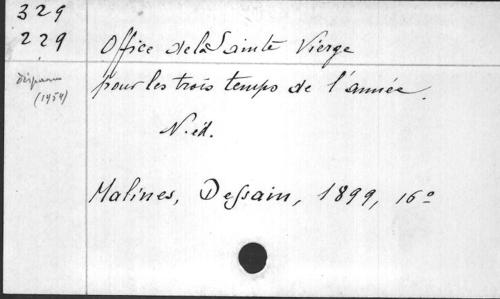 329
229
Office de la Sainte Vierge
disparu
(1954)
pour les trois temps de l'année.
N. éd.
Malines, Dessain, 1899, 16º